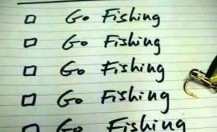 Go Fishing
Go Fishing
Go Fishing
Go Fishing
Go Fishing